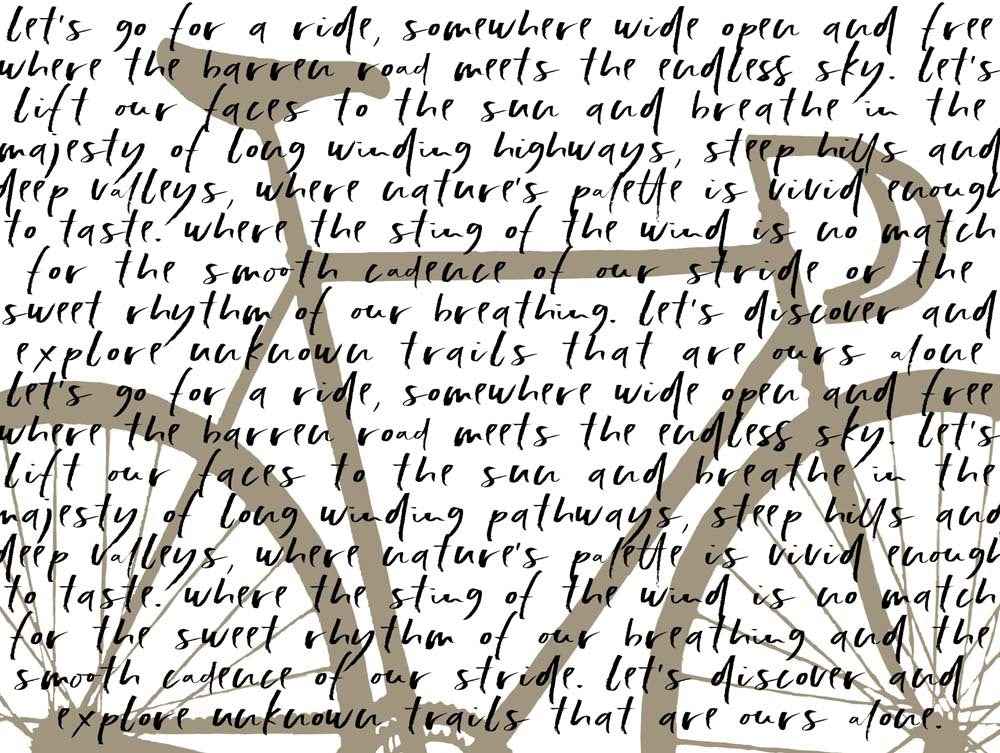 let's go for a ride, somewhere wide open and free
where the barren road meets the endless sky. let's
lift our faces to the sun and breathe in the
majesty of long winding highways, steep hills and
deep valleys, where nature's palette is vivid enough
to taste. where the sting of the wind is no match
for the smooth cadence of our stride or the
sweet rhythm of our breathing. let's discover and
explore unknown trails that are ours alone
let's go for a ride, somewhere wide open and free
where the barren road meets the endless sky. let's
lift our faces to the sun and breathe in the
majesty of long winding pathways, steep hills and
deep valleys, where nature's palette is vivid enough
to taste. where the sting of the wind is no match
for the sweet rhythm of our breathing and the
smooth cadence of our stride. let's discover and
explore unknown trails that are ours alone.